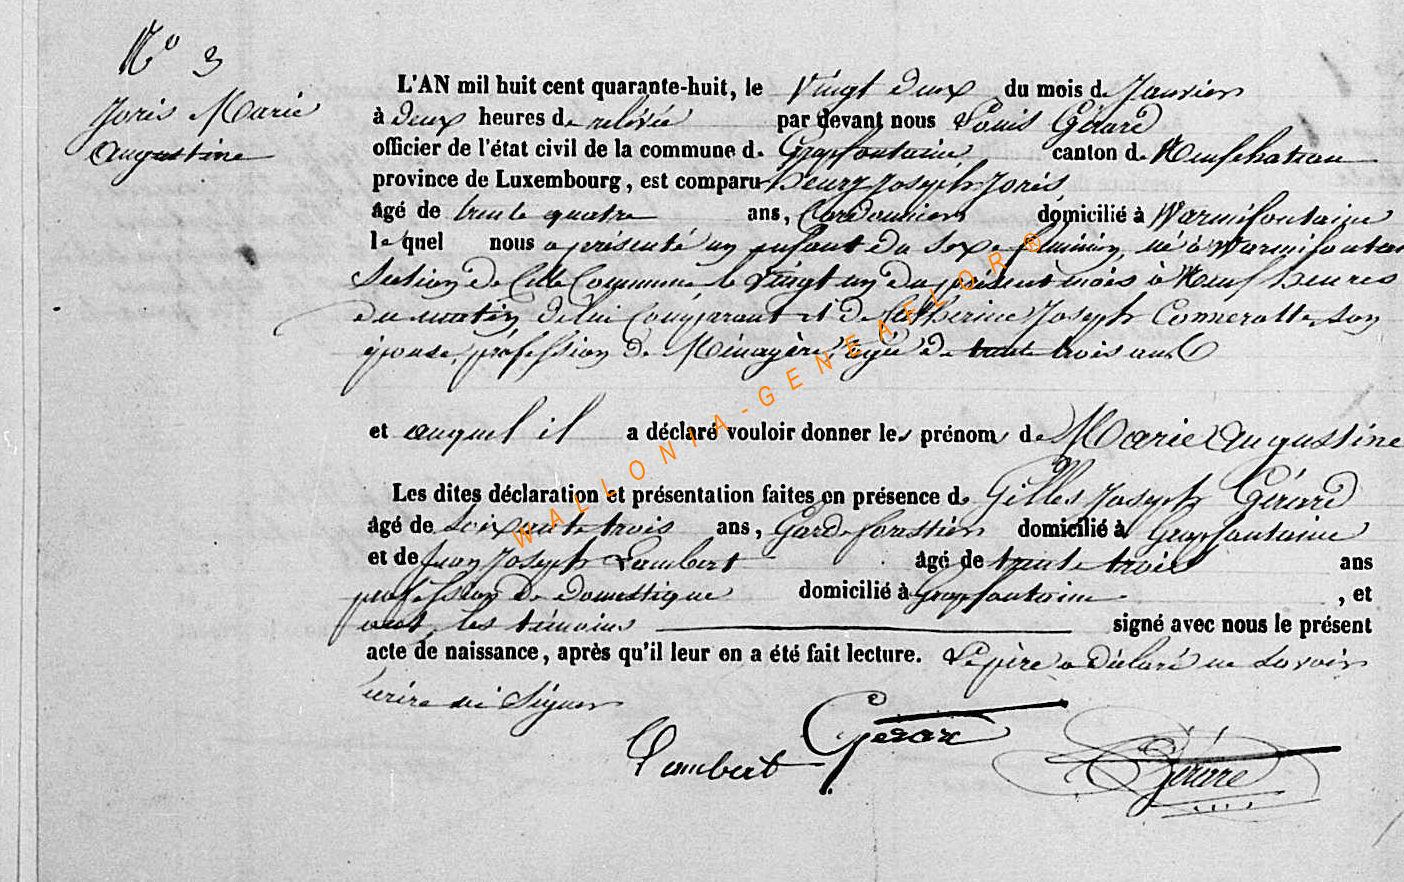 N° 3
Joris Marie
Augustine
L'AN mil huit cent quarante-huit, le Vingt deux du mois de Janvier
à deux heures de relévée par devant nous Louis Gérard
officier de l'état civil de la commune de Grapfontaine canton de Neufchateau
province de Luxembourg, est comparu Henry Joseph Joris
âgé de trente quatre ans, Cordonnier domicilié à Warmifontaine
le quel nous a présenté un enfant du sexe féminin, né à Warmifontaine
Section de Cette Commune le Vingt un du présent mois à Neuf heures
du matin, de lui Comparant et de Catherine Joseph Connerotte, son
épouse, profession de Ménagère, agée de trente trois ans
et auquel il a déclaré vouloir donner les prénoms de Marie Augustine
Les dites déclaration et présentation faites en présence de Gilles Joseph Gérard
âgé de Soixante trois ans, Garde forestier domicilié à Grapfontaine
et de Jean Joseph Lambert âgé de trente trois ans
profession de domestique domicilié à Grapfontaine, et
ont, les témoins signé avec nous le présent
acte de naissance, après qu'il leur en a été fait lecture. Le père a déclaré ne savoir
écrire ni Signer
Lambert Gerard Gérard
WALLONIA-GENEAFLOR®